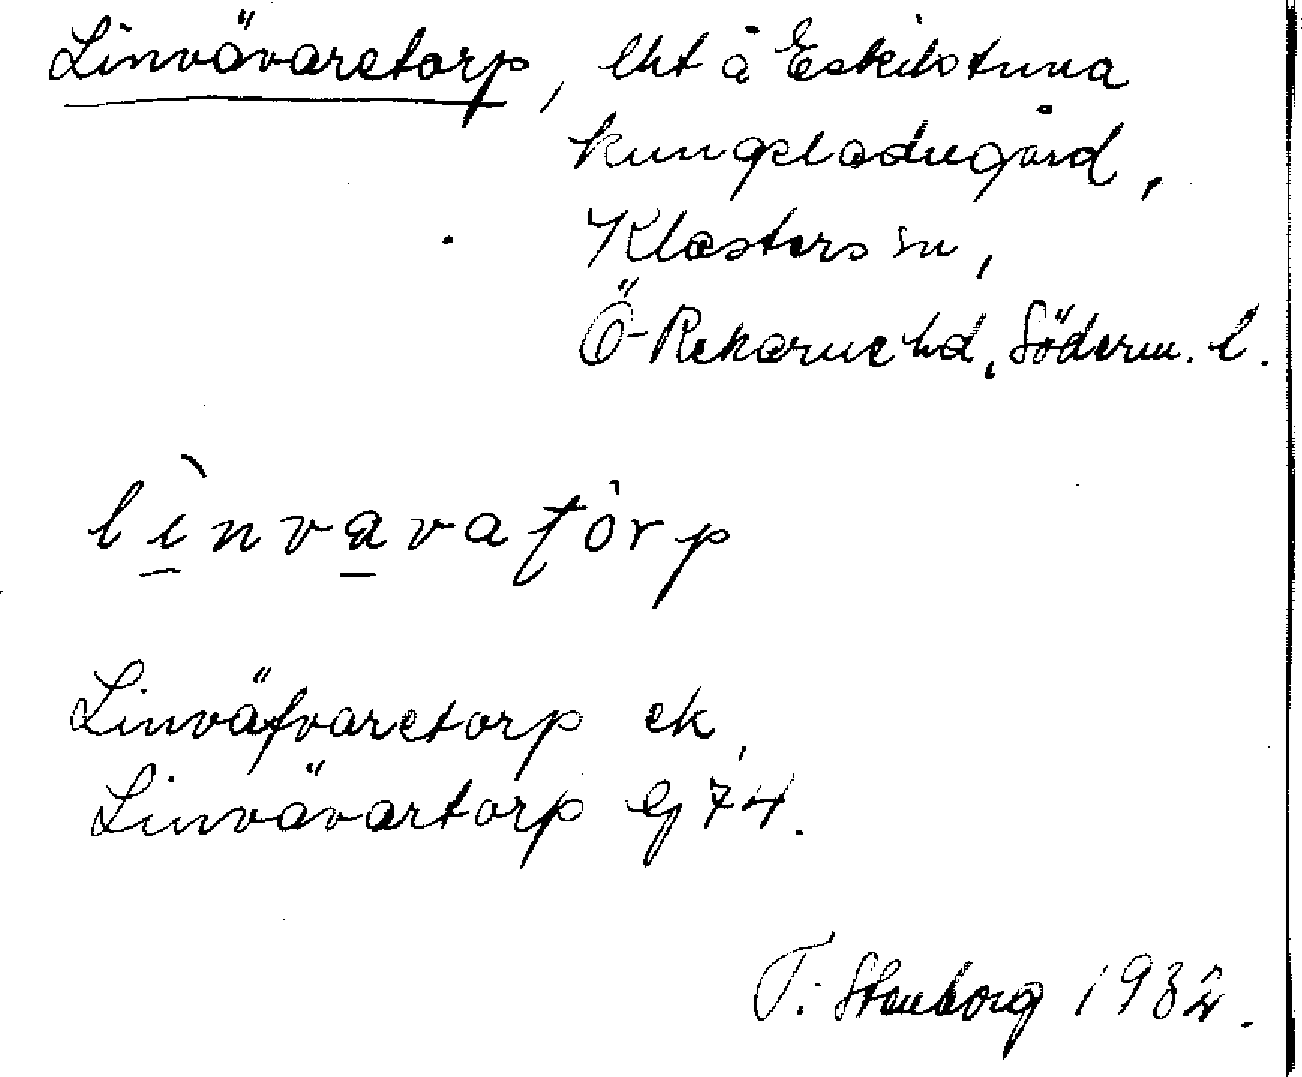 Linvävaretorp, lht å Eskilstuna
kungsladugård,
Klosters sn,
Ö-Rekarne hd, Söderm. l.
lìnvavatòrp
Linväfvaretorp ek,
Linvävartorp Gj 74.
T. Stenborg 1932.